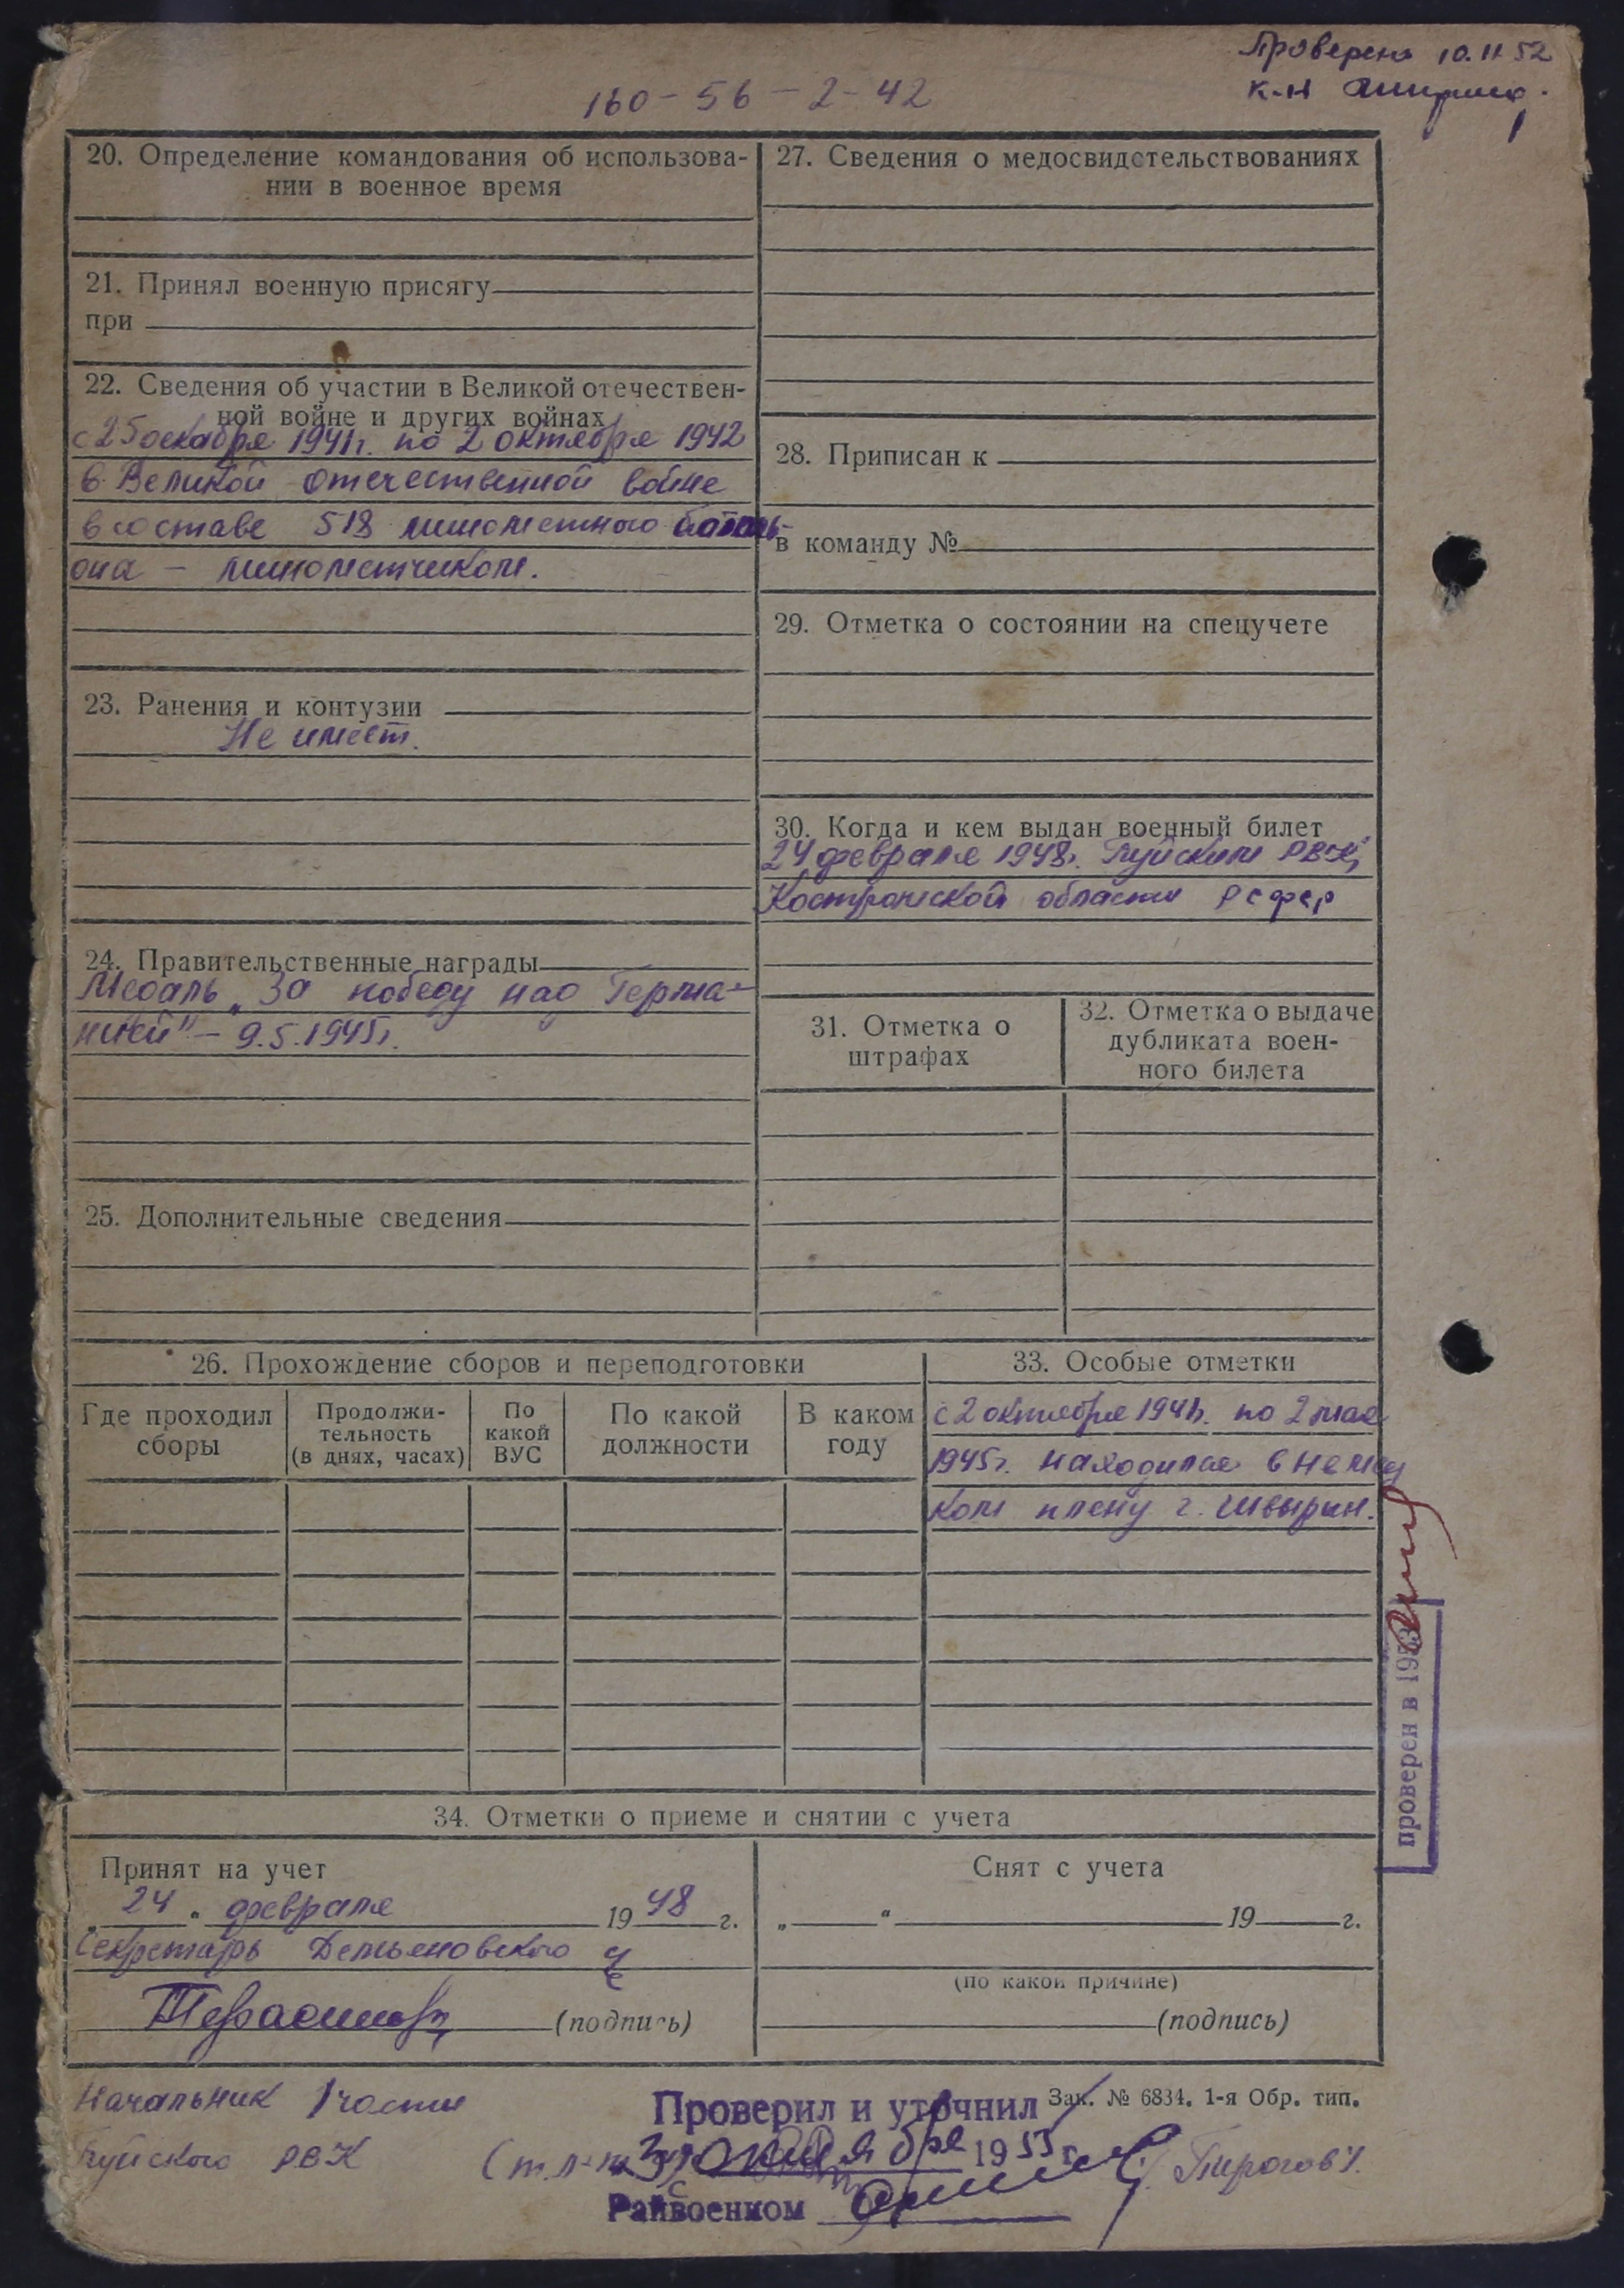 Проверено 10.11.52
к-н
160-56-2-42
20. Определение командования об использова-
нии в военное время
21. Принял военную присягу
при
22. Сведения об участии в Великой отечествен-
ной войне и других войнах
с 25 декабря 1941г. по 2 октября 1942
в Великой отечественной войне
в составе 518 минометного баталь-
она – минометчиком.
23. Ранения и контузии
Не имеет.
24. Правительственные награды
Медаль „За победу над Герма-
нией" – 9.5.1945г.
25. Дополнительные сведения
27. Сведения о медосвидетельствованиях
28. Приписан к
в команду №
29. Отметка о состоянии на спецучете
30. Когда и кем выдан военный билет
24 февраля 1948г. Буйским РВК,
Костромской области РСФСР
31. Отметка о
штрафах
32. Отметка о выдаче
дубликата воен-
ного билета
26. Прохождение сборов и переподготовки
Где проходил
сборы
Продолжи-
тельность
(в днях, часах)
По
какой
ВУС
По какой
должности
В каком
году
33. Особые отметки
с 2 октября 1941г. по 2 мая
1945г. находился в немец
ком плену г. Швырин.
проверен в 1953
34. Отметки о приеме и снятии с учета
Принят на учет
„24" февраля 1948 г.
Секретарь Демьяновского
(подпись)
Снят с учета
„ " 19 г.
(по какой причине)
(подпись)
Начальник 1 части
Буйского РВК
Зак. № 6834. 1-я Обр. тип.
Проверил и уточнил
октября 1953 г.
Райвоенком
Пирогов